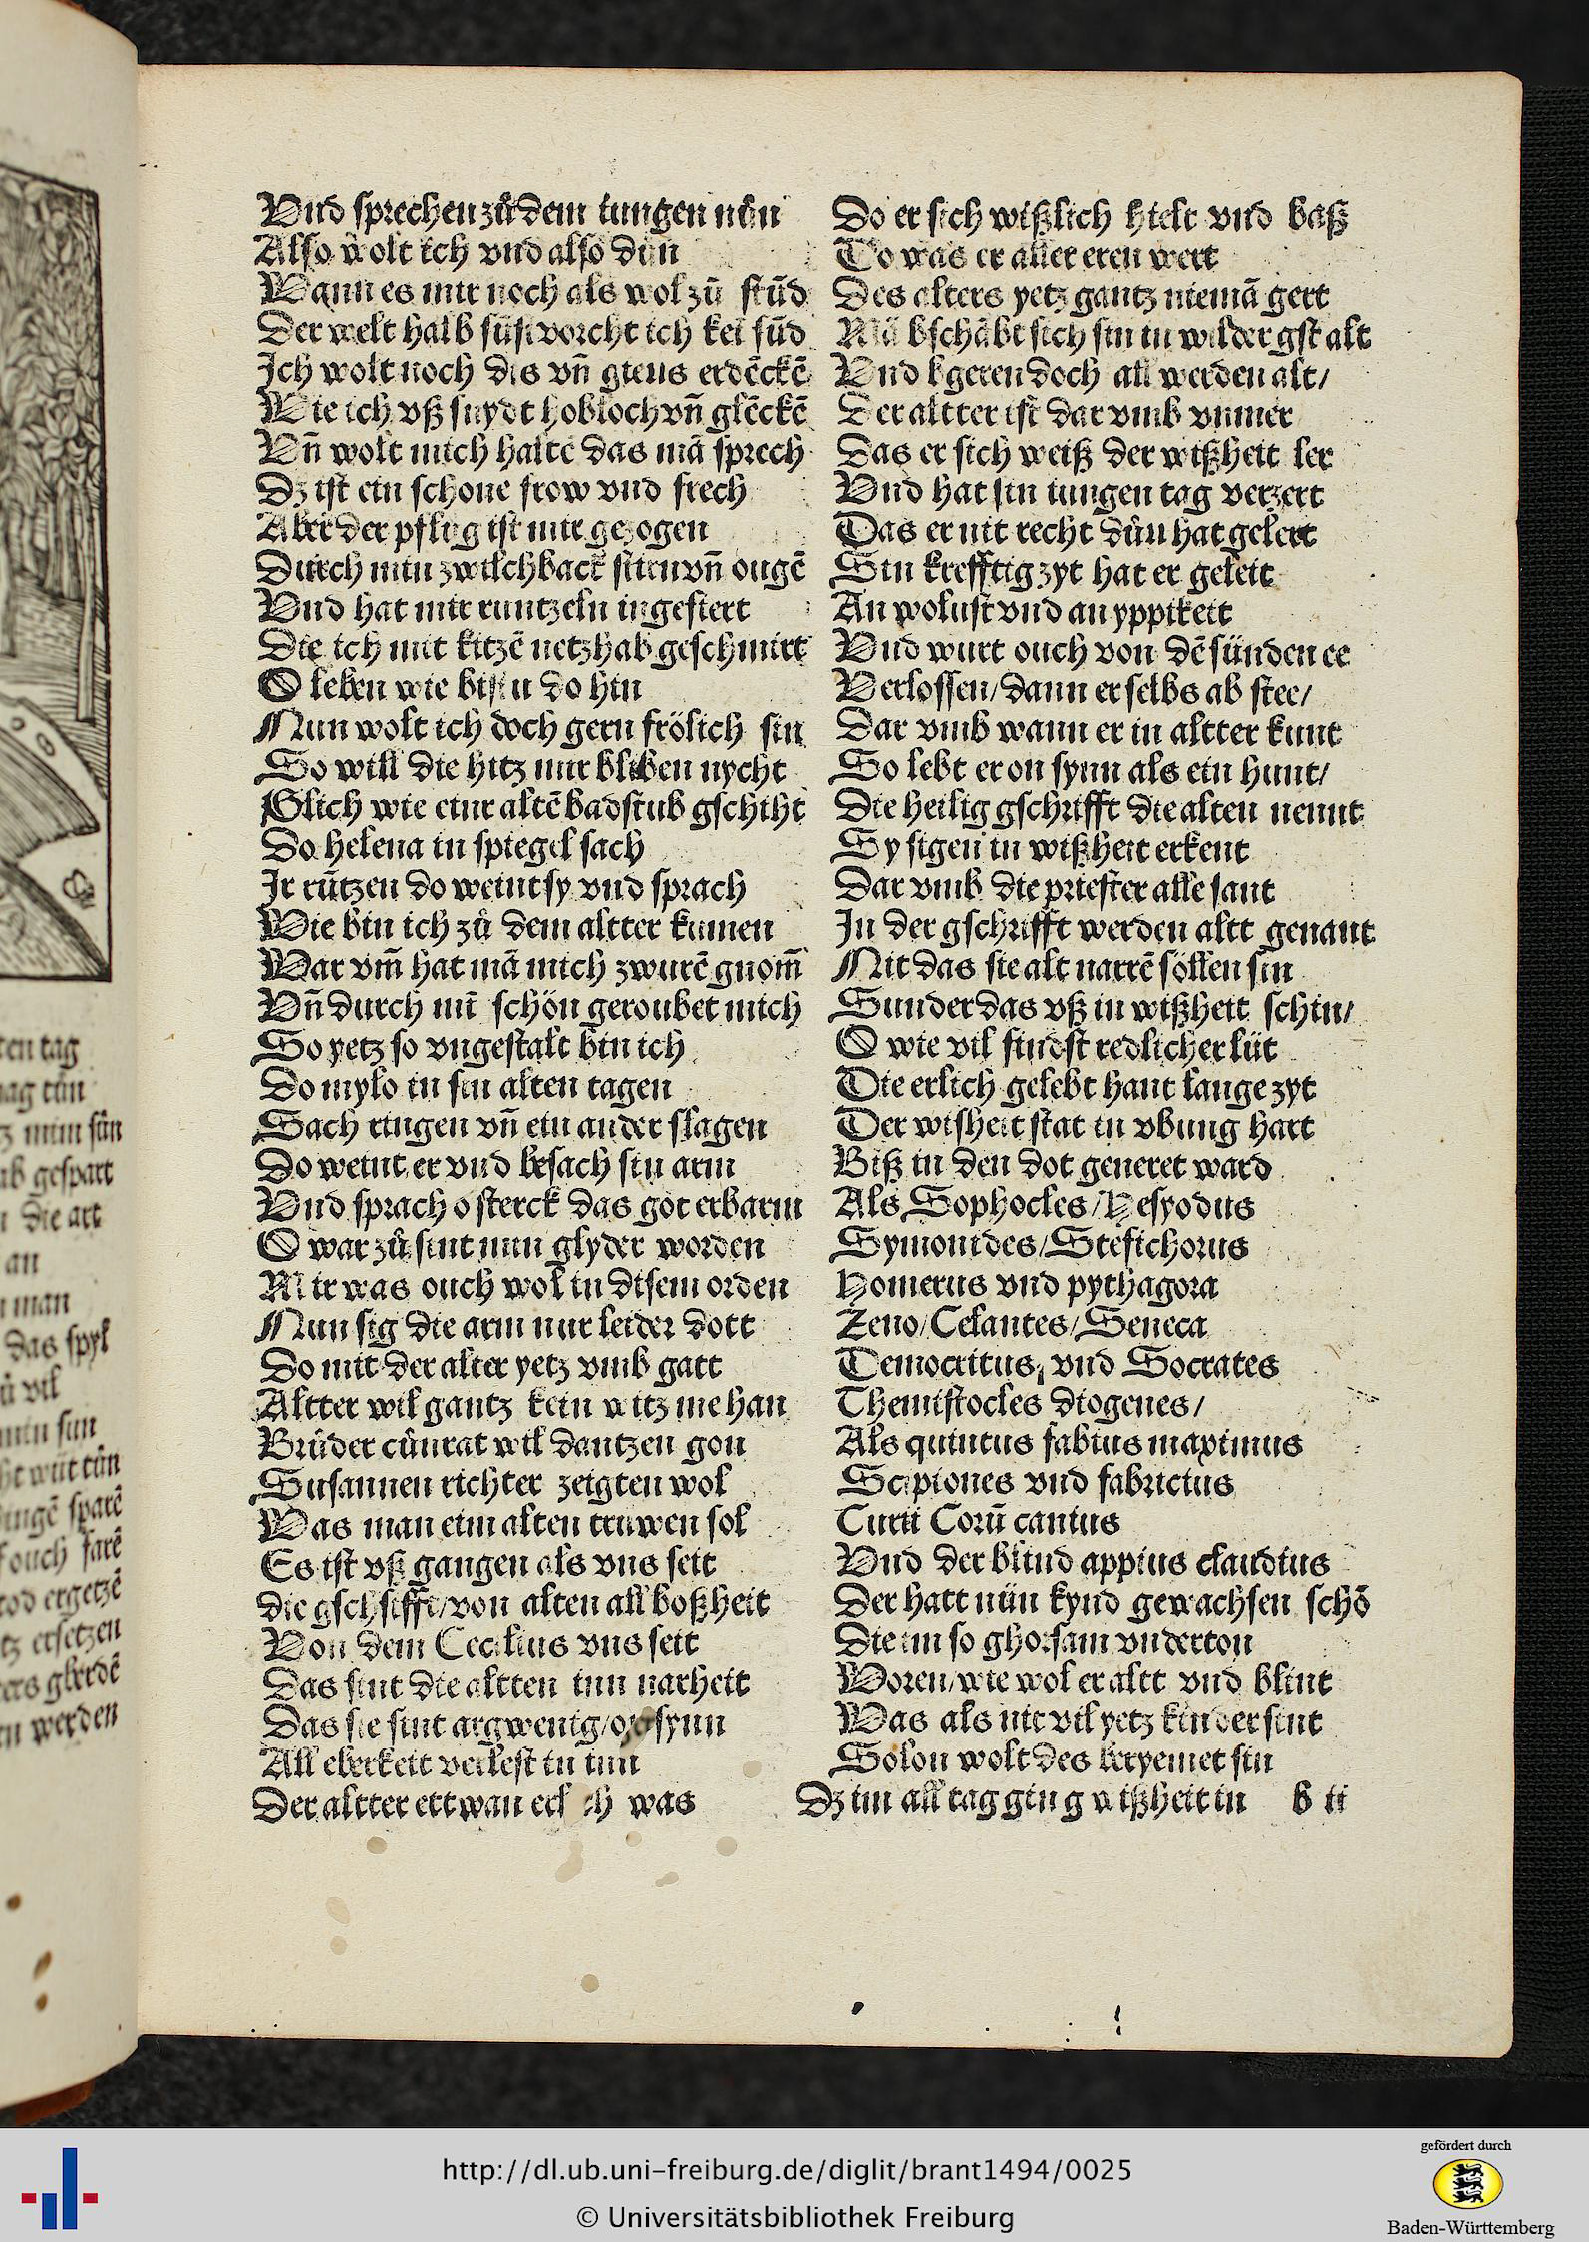 Vnd sprechen zů dem iungen nůn
Also wolt ich vnd also důn
Wann es mir noch als wol zů stůd
Der welt halb sust vorcht ich kei sūd
Ich wolt noch dis vn̄ giens erdēckē
Wie ich vß snydt hobloch vn̄ glēckē
Vn̄ wolt mich haltē das mā sprech
Dz ist ein schone frow vnd frech
Aber der pflůg ist mir gezogen
Durch min zwilchback stirn vn̄ ougē
Vnd hat mir runtzeln ingefiert
Die ich mit kitzē netz hab geschmirt
O leben wie bistu do hin
Nun wolt ich doch gern frölich sin
So will die hitz mir bliben nycht
Glich wie einr altē badstub gschiht
Do helena in spiegel sach
Ir rūtzen do weint sy vnd sprach
Wie bin ich zů dem altter kumen
War vm̄ hat mā mich zwurē gnom̄
Vn̄ durch mī schön geroubet mich
So yetz so vngestalt bin ich
Do mylo in sin alten tagen
Sach ringen vn̄ ein ander slagen
Do weint er vnd besach sin arm
Vnd sprach o sterck das got erbarm
O war zů sint min glyder worden
Mir was ouch wol in disem orden
Nun sig die arm mir leider dott
Do mit der alter yetz vmb gatt
Altter wil gantz kein witz me han
Brůder cůnrat wil dantzen gon
Susannen richter zeigten wol
Was man eim alten truwen sol
Es ist vß gangen als vns seit
die gschrifft/von alten all boßheit
Von dem Cecilius vns seit
Das sint die altten inn narheit
Das sie sint argwenig/on synn
All eberkeit verlest in inn
Der altter ettwan erlich was
Do er sich wißlich hielt vnd baß
Do was er aller eren wert
Des alters yetz gantz niemā gert
Mā bschäbt sich sin in wilder gstalt
Vnd bgeren doch all werden alt/
Der altter ist dar vmb vnmer
Das er sich weiß der wißheit ler
Vnd hat sin iungen tag verzert
Das er nit recht důn hat gelert
Sin krefftig zyt hat er geleit
An wolust vnd an yppikeit
Vnd wurt ouch von dē sünden ee
Verlossen/dann er selbs ab stee/
Dar vmb wann er in altter kunt
So lebt er on synn als ein hunt/
Die heilig gschrifft die alten nennt
Sy sigen in wißheit erkent
Dar vmb die priester alle sant
In der gschrifft werden altt genant
Nit das sie alt narrē söllen sin
Sunder das vß in wißheit schin/
O wie vil findst redlicher lüt
Die erlich gelebt hant lange zyt
Der wisheit stat in vbung hart
Biß in den dot generet ward
Als Sophocles/Hesyodus
Symonides/Stesichorus
Homerus vnd pythagora
Zeno/Celantes/Seneca
Democritus, vnd Socrates
Themistocles diogenes/
Als quintus fabius maximus
Scipiones vnd fabricius
Curii Corū cantus
Vnd der blind appius claudius
Der hatt nün kynd gewachsen schō
Die im so ghorsam vnderton
Woren/wie wol er altt vnd blint
Was als nit vil yetz kinder sint
Solon wolt des beryemet sin
Dz im all tag ging wißheit in b ii
ten tag
mag tün
min sün
ab gespart
die art
an
man
das spyl
vil
min sun
wirt tün
iungē sparē
ouch farē
tod ergetzē
ersetzen
werden
http://dl.ub.uni-freiburg.de/diglit/brant1494/0025
© Universitätsbibliothek Freiburg
gefördert durch
Baden-Württemberg